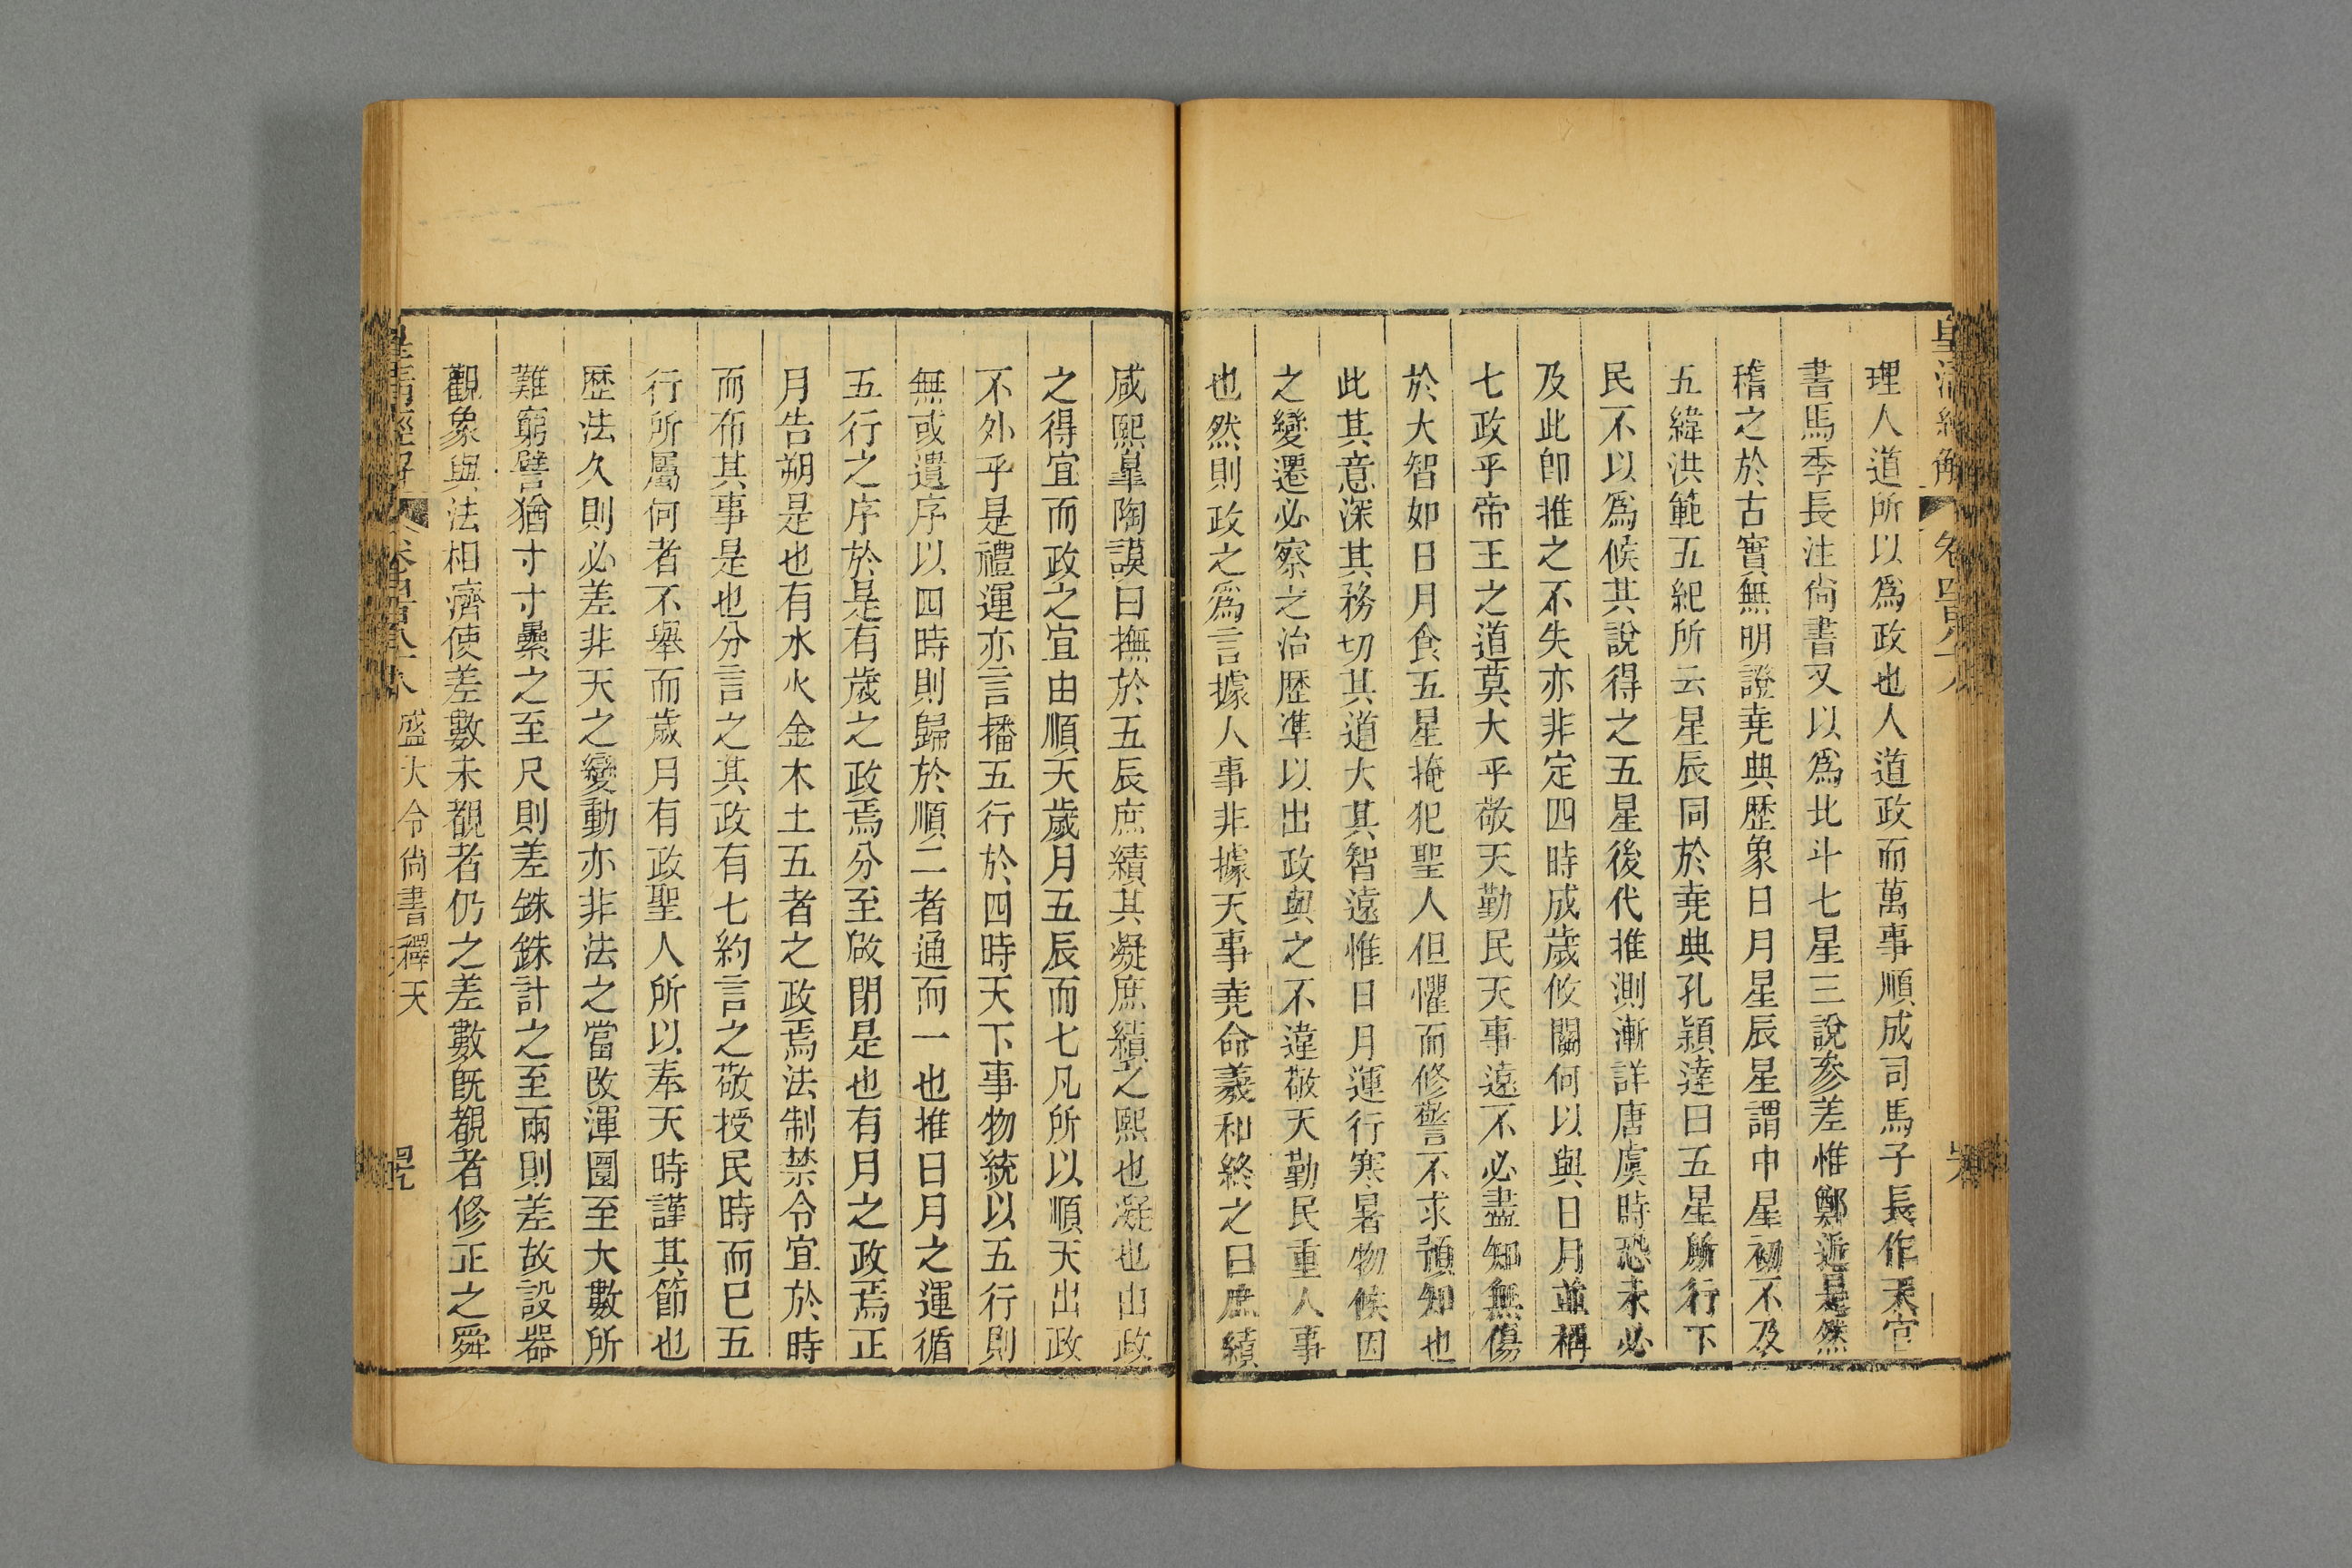 理人道所以爲政也人道政而萬事順成司馬子長作天官
書馬季長注尚書又以爲北斗七星三說參差惟鄭近是然
稽之於古實無明證堯典歷象日月星辰星謂中星初不及
五緯洪範五紀所云星辰同於堯典孔穎達曰五星所行下
民不以爲候其說得之五星後代推測漸詳唐虞時恐未必
及此卽推之不失亦非定四時成歲攸關何以與日月並稱
七政乎帝王之道莫大乎敬天勤民天事遠不必盡知無傷
於大智如日月食五星掩犯聖人但懼而修警不求預知也
此其意深其務切其道大其智遠惟日月運行寒暑物候因
之變遷必察之治歷準以出政與之不違敬天勤民重人事
也然則政之爲言據人事非據天事堯命羲和終之曰庶績
咸熙臯陶謨曰撫於五辰庶績其凝庶績之熙也凝也由政
之得宜而政之宜由順天歲月五辰而七凡所以順天出政
不外乎是禮運亦言播五行於四時天下事物統以五行則
無或遺序以四時則歸於順二者通而一也推日月之運循
五行之序於是有歲之政焉分至啟閉是也有月之政焉正
月告朔是也有水火金木土五者之政焉法制禁令宜於時
而布其事是也分言之其政有七約言之敬授民時而已五
行所屬何者不舉而歲月有政聖人所以奉天時謹其節也
歷法久則必差非天之變動亦非法之當改渾圜至大數所
難窮譬猶寸寸纍之至尺則差銖銖計之至兩則差故設器
觀象與法相濟使差數未覩者仍之差數旣覩者修正之舜
皇清經解 卷四百八十八 盛大令尚書釋天